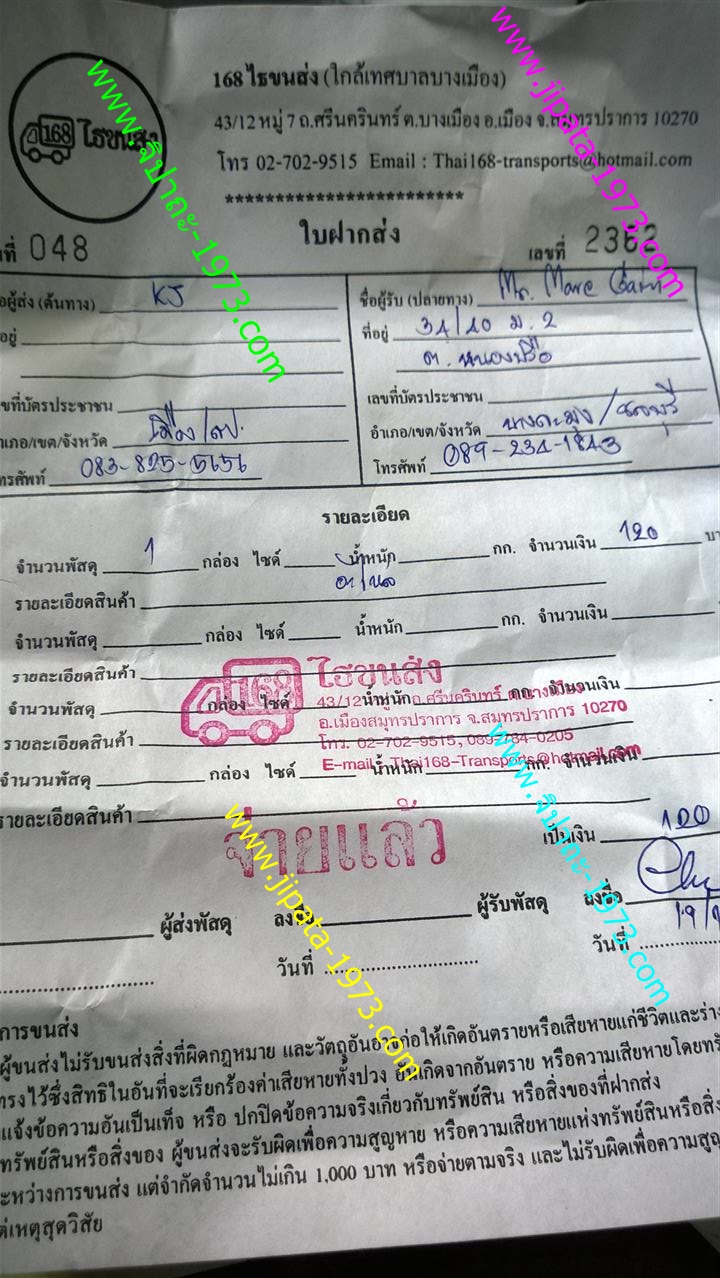 168 ไธขนส่ง (ใกล้เทศบาลบางเมือง)
168 ไธขนส่ง
43/12 หมู่ 7 ถ.ศรีนครินทร์ ต.บางเมือง อ.เมือง จ.สมุทรปราการ 10270
โทร 02-702-9515 Email : Thai168-transports@hotmail.com
************************
ใบฝากส่ง
ที่ 048
เลขที่ 2362
ผู้ส่ง (ต้นทาง) KJ
ชื่อผู้รับ (ปลายทาง) Mr. Marc
อยู่
ที่อยู่ 34/40 ม. 2
ต. หนองปรือ
ขที่บัตรประชาชน
เลขที่บัตรประชาชน
อำเภอ/เขต/จังหวัด เมือง/สป.
อำเภอ/เขต/จังหวัด บางละมุง/ชลบุรี
ทรศัพท์ 083-825-5656
โทรศัพท์ 089-234-1843
รายละเอียด
จำนวนพัสดุ 1 กล่อง ไซด์ น้ำหนัก กก. จำนวนเงิน 120 บา
รายละเอียดสินค้า
จำนวนพัสดุ กล่อง ไซด์ น้ำหนัก กก. จำนวนเงิน
รายละเอียดสินค้า
จำนวนพัสดุ กล่อง ไซด์ น้ำหนัก กก. จำนวนเงิน
รายละเอียดสินค้า
จำนวนพัสดุ กล่อง ไซด์ น้ำหนัก กก. จำนวนเงิน
รายละเอียดสินค้า
168 ไธขนส่ง
43/12 ถ.ศรีนครินทร์ ต.บางเมือง
อ.เมืองสมุทรปราการ จ.สมุทรปราการ 10270
โทร. 02-702-9515, 089-784-0205
E-mail : Thai168-Transports@hotmail.com
จ่ายแล้ว
เป็นเงิน 120
ผู้ส่งพัสดุ ลงชื่อ ผู้รับพัสดุ ลงชื่อ
วันที่ วันที่ 19/
การขนส่ง
ผู้ขนส่งไม่รับขนส่งสิ่งที่ผิดกฎหมาย และวัตถุอันอาจก่อให้เกิดอันตรายหรือเสียหายแก่ชีวิตและร่าง
ทรงไว้ซึ่งสิทธิในอันที่จะเรียกร้องค่าเสียหายทั้งปวง อันเกิดจากอันตราย หรือความเสียหายโดยทรั
แจ้งข้อความอันเป็นเท็จ หรือ ปกปิดข้อความจริงเกี่ยวกับทรัพย์สิน หรือสิ่งของที่ฝากส่ง
ทรัพย์สินหรือสิ่งของ ผู้ขนส่งจะรับผิดเพื่อความสูญหาย หรือความเสียหายแห่งทรัพย์สินหรือสิ่ง
ะหว่างการขนส่ง แต่จำกัดจำนวนไม่เกิน 1,000 บาท หรือจ่ายตามจริง และไม่รับผิดเพื่อความสูญ
ต่เหตุสุดวิสัย
www.jipata-1973.com
www.จิปาถะ-1973.com
www.จิปาถะ-1973.com
www.jipata-1973.com